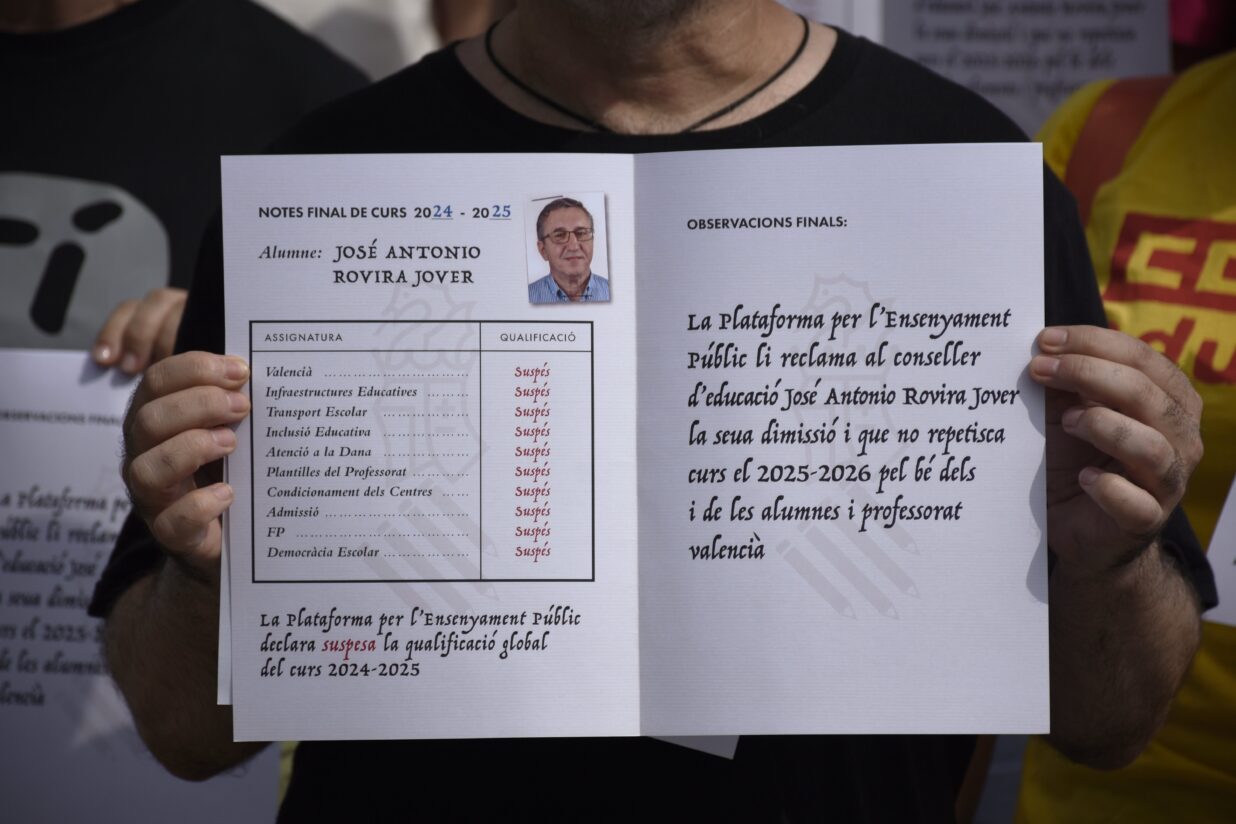 NOTES FINAL DE CURS 2024 - 2025
Alumne: JOSÉ ANTONIO
ROVIRA JOVER
ASSIGNATURA QUALIFICACIÓ
Valencià ........................ Suspés
Infraestructures Educatives ........ Suspés
Transport Escolar ................ Suspés
Inclusió Educativa ................ Suspés
Atenció a la Dana ................ Suspés
Plantilles del Professorat ........... Suspés
Condicionament dels Centres ...... Suspés
Admissió ........................ Suspés
FP ............................. Suspés
Democràcia Escolar ................ Suspés
La Plataforma per l'Ensenyament Públic
declara suspesa la qualificació global
del curs 2024-2025
OBSERVACIONS FINALS:
La Plataforma per l'Ensenyament
Públic li reclama al conseller
d'educació José Antonio Rovira Jover
la seua dimissió i que no repetisca
curs el 2025-2026 pel bé dels
i de les alumnes i professorat
valencià